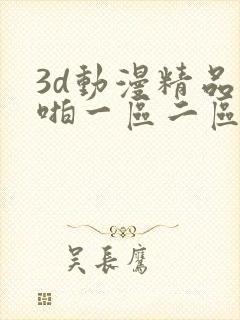 3d動漫精品
啪一區二區
吴長鷹